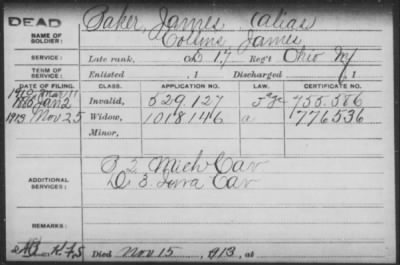 DEAD
Baker, James, (alias
NAME OF SOLDIER:
Collins, James
SERVICE: Late rank, D 17 Reg't Ohio Inf
TERM OF SERVICE: Enlisted , 1 Discharged , 1
DATE OF FILING. CLASS. APPLICATION NO. LAW. CERTIFICATE NO.
1912 Mar 11
Jan 2 Invalid, 529,127 755.586
1913 Nov 25 Widow, 1018146 a 776536
Minor,
ADDITIONAL SERVICES:
B 2 Mich Cav
D 3 Iowa Cav
REMARKS:
Died Nov 15, 1913, at